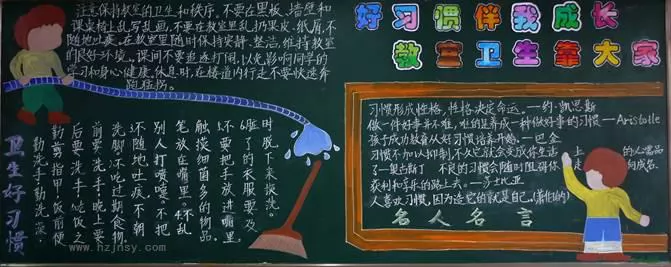 好习惯伴我成长
教室卫生靠大家
注意保持教室的卫生和秩序。不要在黑板、墙壁和
课桌椅上乱写乱画,不要在教室里乱扔果皮、纸屑,不
随地吐痰。在教室里随时保持安静、整洁,维持教室
的良好环境。课间不要追逐打闹,以免影响同学的
学习和身心健康。休息时,在楼道内行走不要快速奔
跑猛拐。
卫生好习惯
勤洗手勤洗澡,
勤剪指甲。饭前便
后要洗手。吃饭之
前要洗手,晚上要
洗脚。不吃过期食物。
3.不随地吐痰,不朝
别人打喷嚏。不把
笔放在嘴里。4.不乱
触摸细菌多的物品。
5.不要把手放进嘴里。
6.脏了的衣服要及
时脱下来换洗。
习惯形成性格,性格决定命运。——约·凯恩斯
做一件好事并不难,难的是养成一种做好事的习惯——Aristotle
孩子成功教育从好习惯培养开始。——巴金
习惯不加以抑制,不久它就会变成你生活上 的必需品
了——奥古斯丁 不良的习惯会随时阻碍你走 向成名、
获利和享乐的路上去。——莎士比亚
人喜欢习惯,因为造它的就是自己。(萧伯纳)
名人名言
www.hzjnsy.com